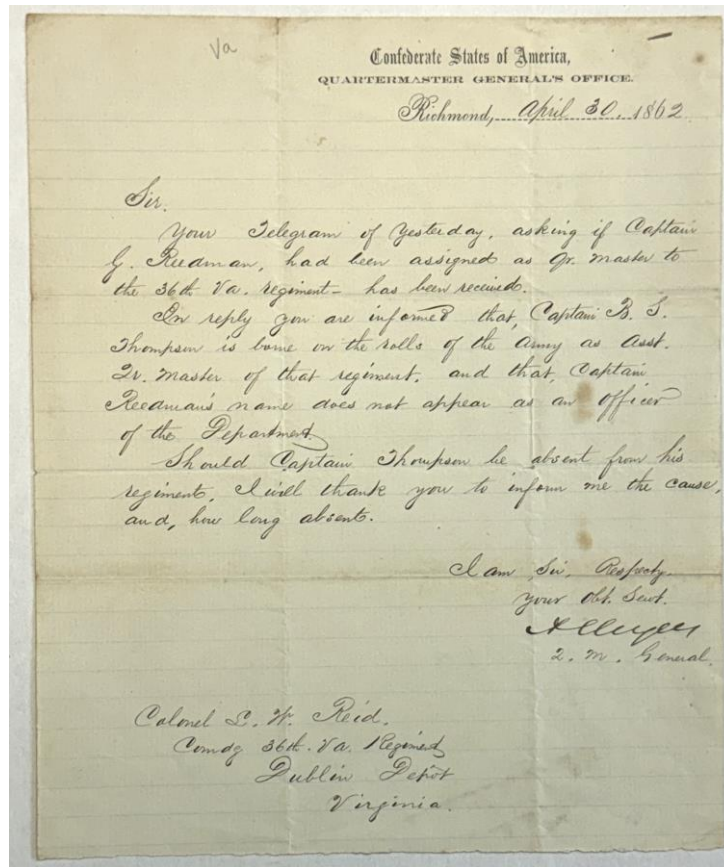 Va
Confederate States of America,
QUARTERMASTER GENERAL'S OFFICE.
Richmond, April 30, 1862
Sir.
Your Telegram of Yesterday, asking if Captain
G. Reedman, had been assigned as Qr. Master to
the 36th Va. regiment - has been received.
In reply you are informed that, Captain B. S.
Thompson is borne on the rolls of the Army as Asst.
Qr. Master of that regiment, and that, Captain
Reedman's name does not appear as an officer
of the Department
Should Captain Thompson be absent from his
regiment, I will thank you to inform me the cause,
and, how long absent.
I am Sir, Respecty.
your Obt. Servt.
Q. M. General.
Colonel L. W. Reid.
Comdg 36th. Va. Regiment
Dublin Depot
Virginia.